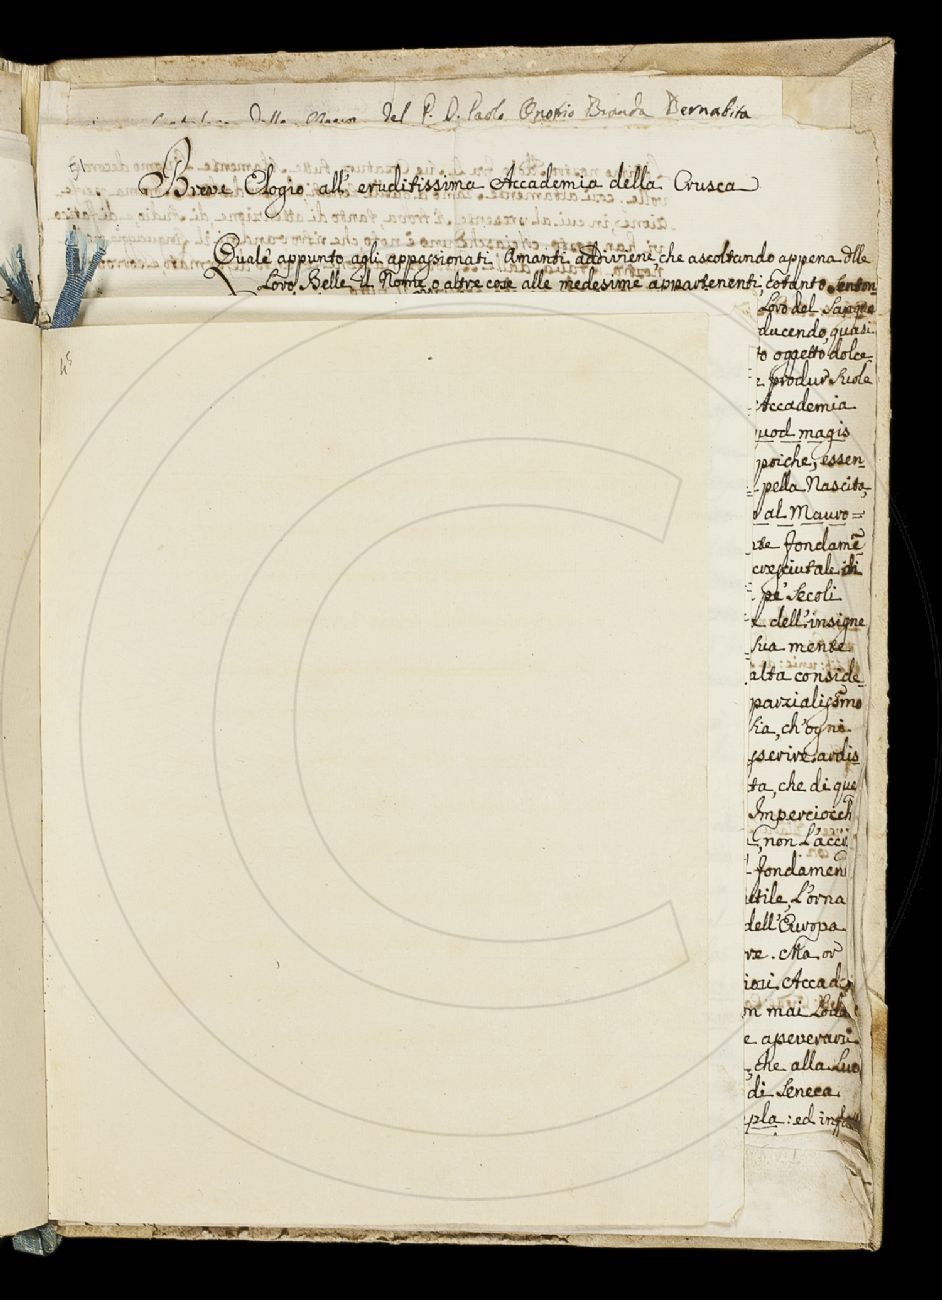 Della Del P. D. Paolo Onofrio Branda Bernabita
Breve Elogio all' eruditissima Accademia della Crusca
Quale appunto agli appassionati Amanti addiviene che ascoltando appena dlle
Loro Belle il Nome, o altre cose alle medesime appartenenti, cotanto senton
Loro del Sangue
ducendo, quasi
to oggetto dolce
e produr suole
Accademia
quod magis
poiche, essen
pella Nascita,
o al Mauro=
nte fondamē
cresciutale di
pe' Secoli
dell'insigne
sua mente
alta conside
parzialissmo
sia, ch'ogni
escrire ardis
ta, che di que
Imperciocch
non l'acci
fondamen
tile, L'orna
dell'Europa
re. Ma or
iori Accade
on mai Loda
e aseverarvi
, che alla Luo
di Seneca
pla: ed infatt
45